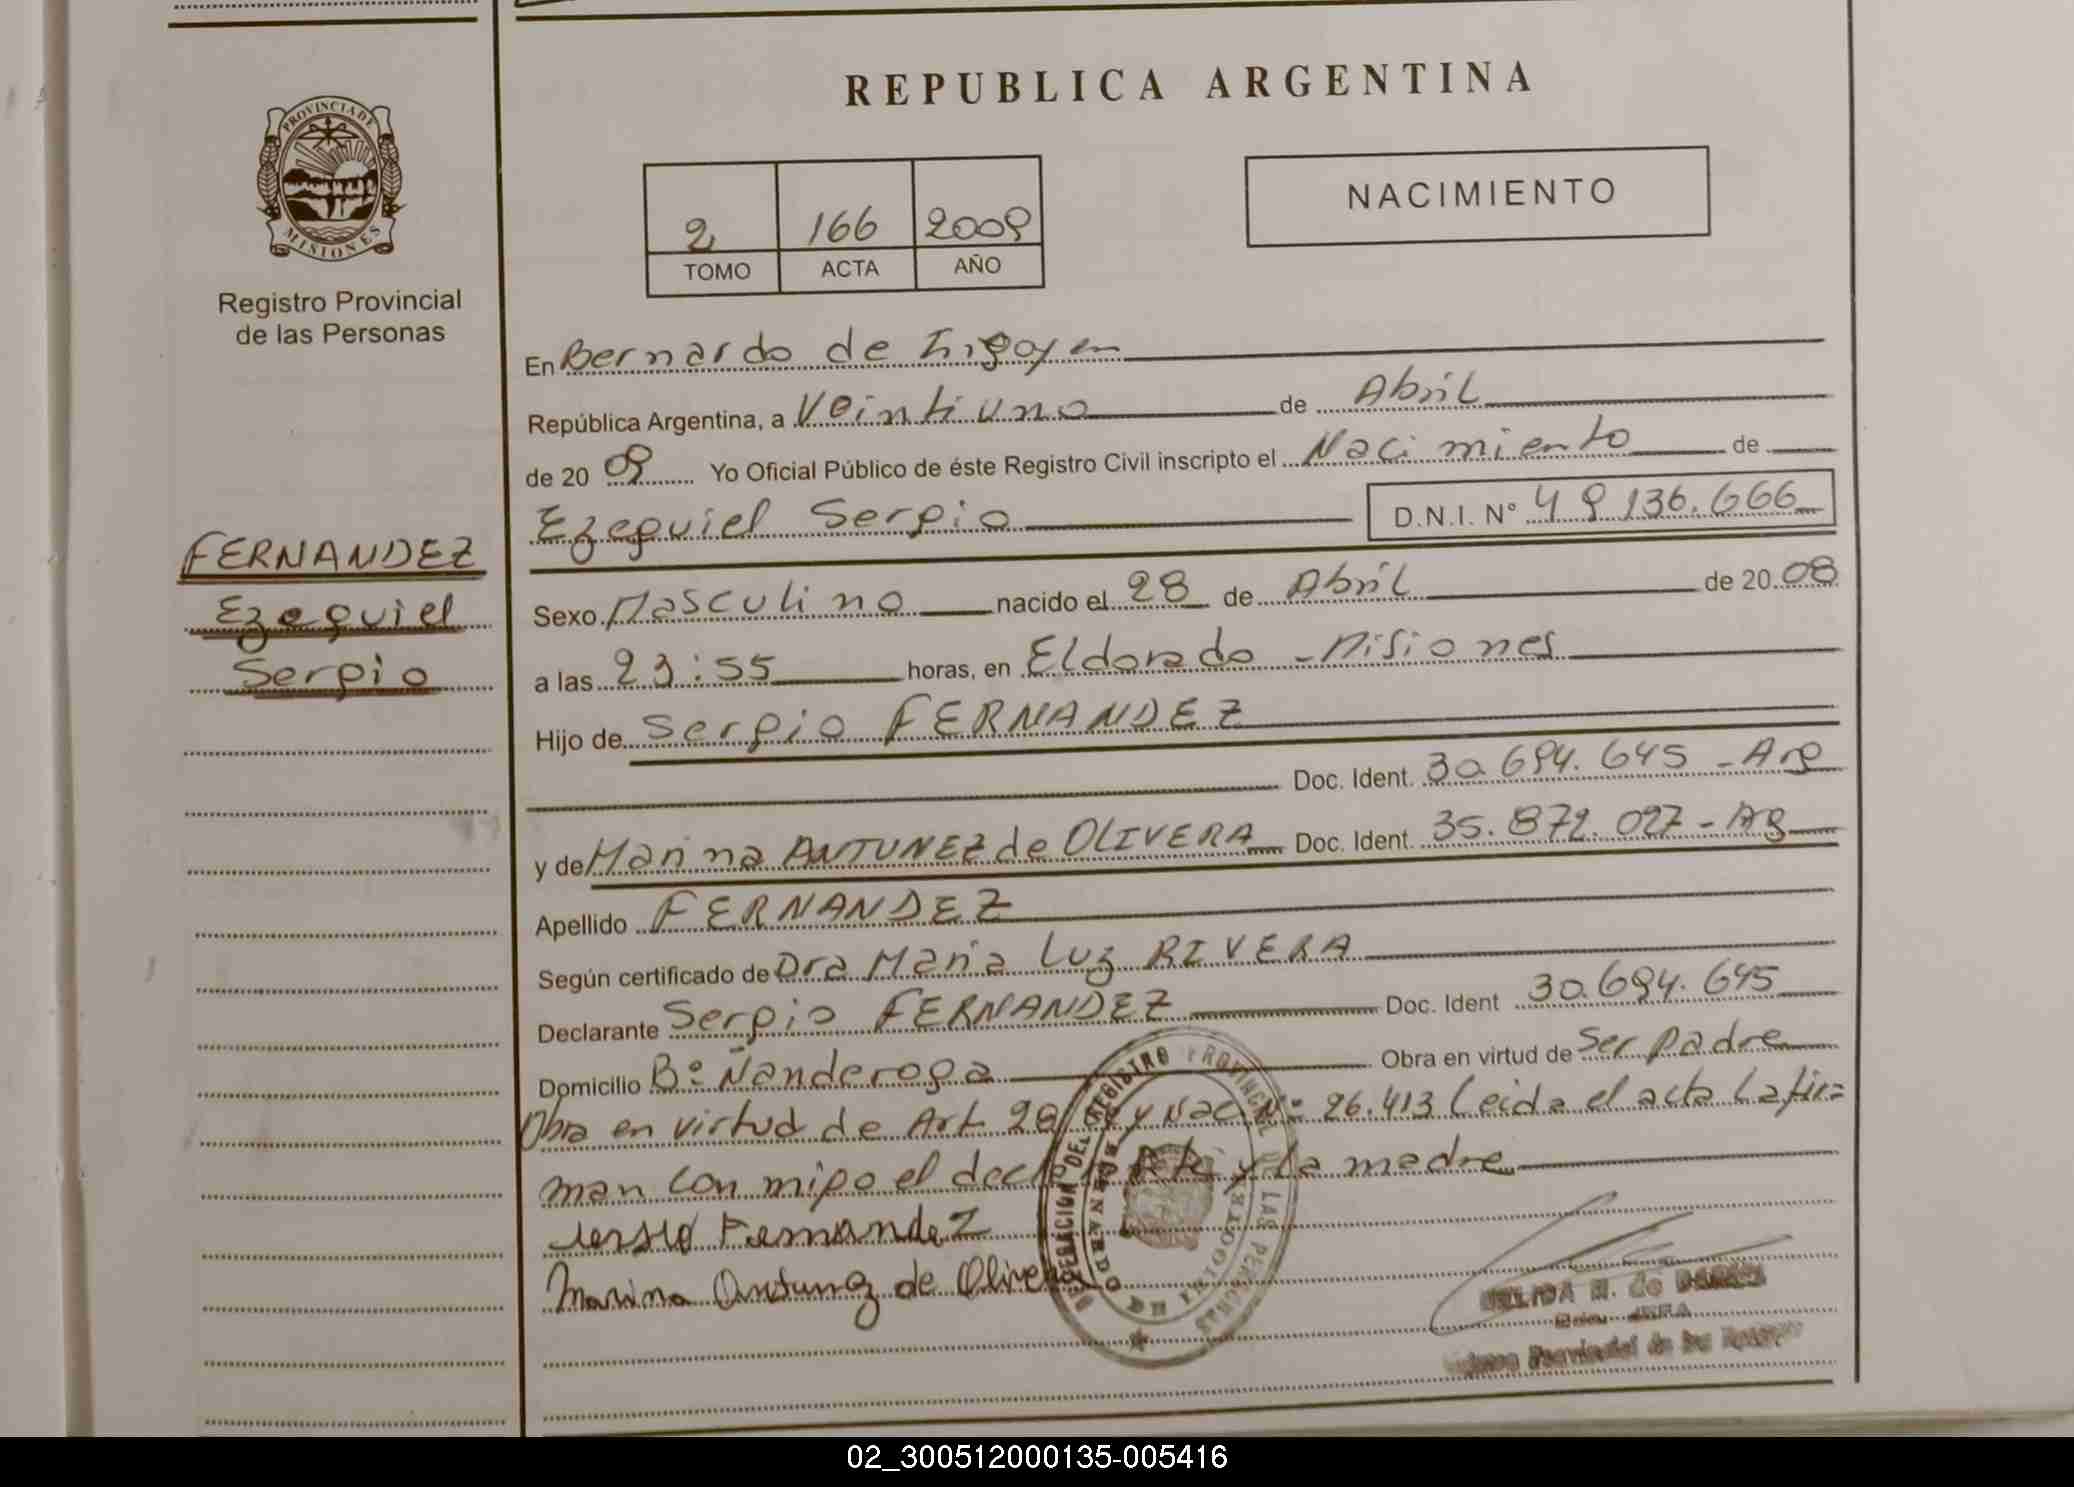 REPUBLICA ARGENTINA
PROVINCIA DE
MISIONES
Registro Provincial
de las Personas
2 166 2009
TOMO ACTA AÑO
NACIMIENTO
En Bernardo de Irigoyen
República Argentina, a Veintiuno de Abril
de 20 09 Yo Oficial Público de éste Registro Civil inscripto el Nacimiento de
Ezequiel Sergio D.N.I. N° 49.136.666
FERNANDEZ
Ezequiel
Sergio
Sexo Masculino nacido el 28 de Abril de 20 08
a las 23:55 horas, en Eldorado - Misiones
Hijo de Sergio FERNANDEZ
Doc. Ident. 30.694.645 - Arg
y de Marina ANTUNEZ de OLIVERA Doc. Ident. 35.872.027 - Arg
Apellido FERNANDEZ
Según certificado de Dra Maria Luz RIVERA
Declarante Sergio FERNANDEZ Doc. Ident 30.694.645
Domicilio B° Ñanderoga Obra en virtud de Ser padre
Obra en virtud de Art. 28 Ley Nac. N° 26.413 Leida el acta La fir=
man con migo el declarante y La madre
Sergio Fernandez
Marina Antunez de Olivera
DELEGACION DEL REGISTRO PROVINCIAL DE LAS PERSONAS
BERNARDO DE IRIGOYEN
JEFA
Provincial de las
02_300512000135-005416